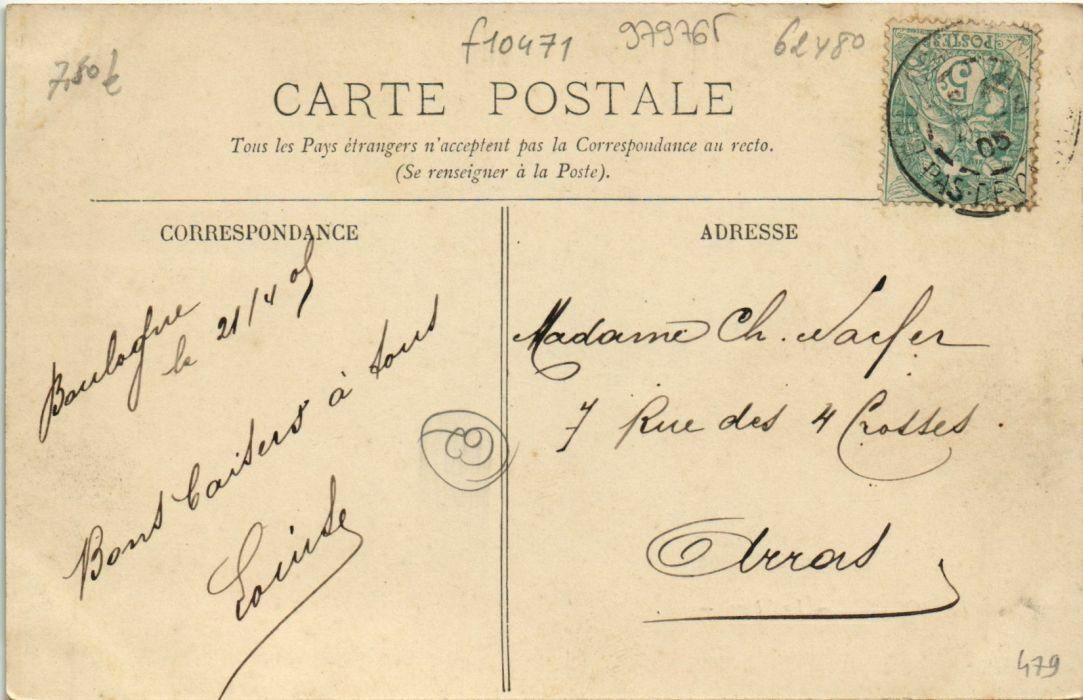 7,50 €
f10471
979765
62480
CARTE POSTALE
Tous les Pays étrangers n'acceptent pas la Correspondance au recto.
(Se renseigner à la Poste).
POSTES
5
05
PAS-DE-C
CORRESPONDANCE
Boulogne
le 21/4 05
Bons baisers à tous
Louise
ADRESSE
Madame Ch.
7 Rue des 4 Crosses.
Arras
479